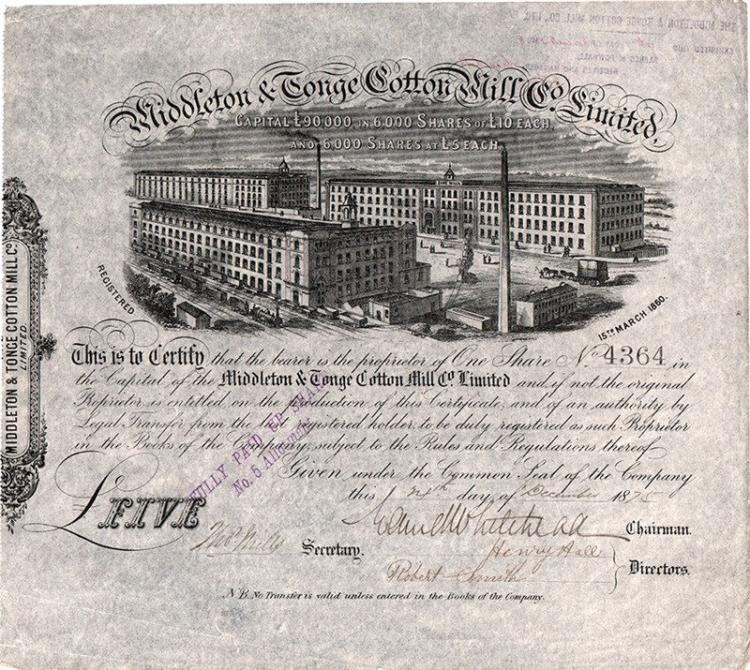 THE MIDDLETON & TONGE COTTON MILL CO., LTD.
Middleton & Tonge Cotton Mill Co. Limited,
CAPITAL £90,000 IN 6,000 SHARES OF £10 EACH,
AND 6,000 SHARES AT £5 EACH.
REGISTERED
15TH MARCH 1860.
MIDDLETON & TONGE COTTON MILL CO.
LIMITED.
This is to Certify that the bearer is the proprietor of One Share No. 4364 in
the Capital of the Middleton & Tonge Cotton Mill Co. Limited and if not the original
Proprietor is entitled, on the production of this Certificate, and of an authority by
Legal Transfer from the last registered holder, to be duly registered as such Proprietor
in the Books of the Company, subject to the Rules and Regulations thereof.
FULLY PAID UP SHARE
No. 5
Given under the Common Seal of the Company
this day of December 1875
£FIVE
Secretary.
Chairman.
Henry Hall
Robert Smith
Directors.
N.B. No Transfer is valid unless entered in the Books of the Company.